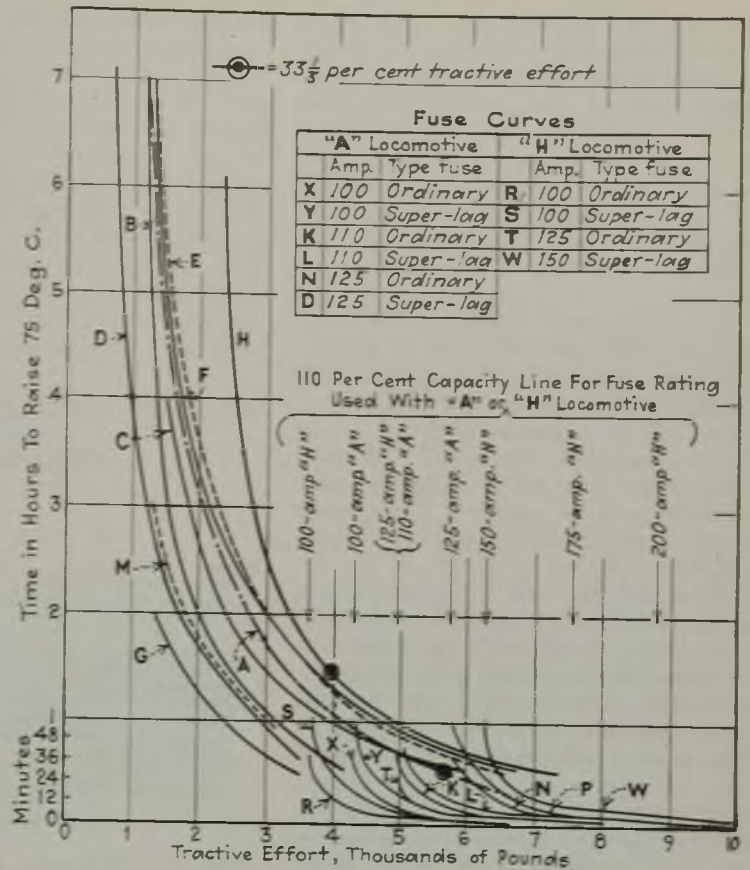 = 33⅓ per cent tractive effort
Fuse Curves
"A" Locomotive "H" Locomotive
Amp. Type fuse Amp. Type fuse
X 100 Ordinary R 100 Ordinary
Y 100 Super-lag S 100 Super-lag
K 110 Ordinary T 125 Ordinary
L 110 Super-lag W 150 Super-lag
N 125 Ordinary
D 125 Super-lag
110 Per Cent Capacity Line For Fuse Rating
Used With "A" or "H" Locomotive
100-amp "H"
100-amp "A"
125-amp "H"
110-amp. "A"
125-amp. "A"
150-amp. "H"
175-amp. "H"
200-amp "H"
Time in Hours To Raise 75 Deg. C.
7
6
5
4
3
2
1
Minutes
48
36
24
12
0
B
E
D
H
F
C
M
G
A
S
X
Y
T
K
L
N
P
W
R
0 1 2 3 4 5 6 7 8 9 10
Tractive Effort, Thousands of Pounds